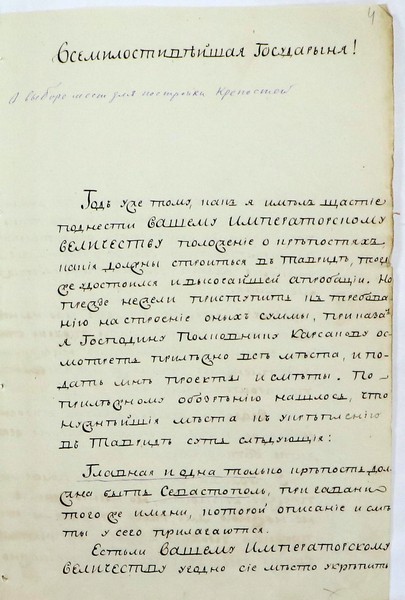 4
Всемилостивѣйшая Государыня!
О выборе мест для постройки Крепостей
Годъ уже тому, какъ я имѣлъ щастіе
поднести ВАШЕМУ ИМПЕРАТОРСКОМУ
ВЕЛИЧЕСТВУ положеніе о крѣпостяхъ
какія должны строиться въ Тавридѣ,
же удостоился и высочайшей апробаціи. Но
прежде нежели приступить къ требова
нію на строеніе оныхъ суммы, приказалъ
я Господину Полковнику Корсакову ос
мотреть прилѣжно всѣ мѣста, и по
дать мнѣ проекты и смѣты. По
прилѣжному обозрѣнію нашлось, что
нужнѣйшія мѣста къ укрѣпленію
въ Тавридѣ суть слѣдующія:
Главная и одна только крѣпость дол
жна быть Севастополь, при гавани
того же имяни, которой описаніе и смѣ
ты у сего прилагаются.
Естьли ВАШЕМУ ИМПЕРАТОРСКОМУ
ВЕЛИЧЕСТВУ угодно сіе мѣсто укрѣпить